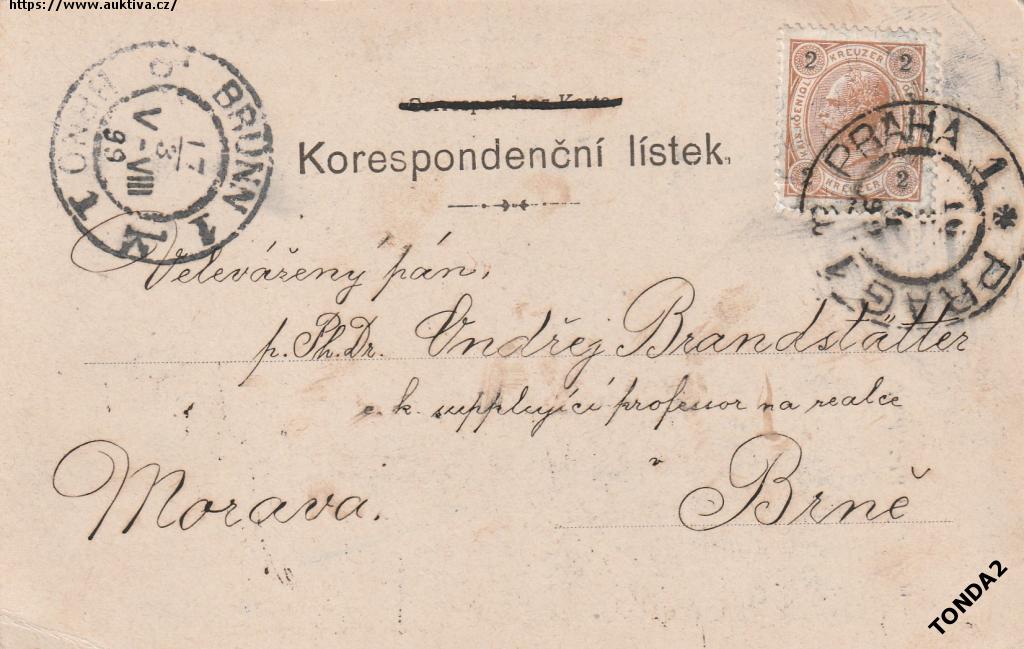 https://www.auktiva.cz/
BRÜNN 1
BRNO 1
17
3
V-VIII
99
2 KREUZER 2
KREUZER 2
PRAHA 1
PRAG 1
Korespondenční lístek.
Velevážený pán,
p. Ph. Dr. Ondřej Brandstätter
c. k. supplující professor na realce
Morava.
Brně
TONDA2